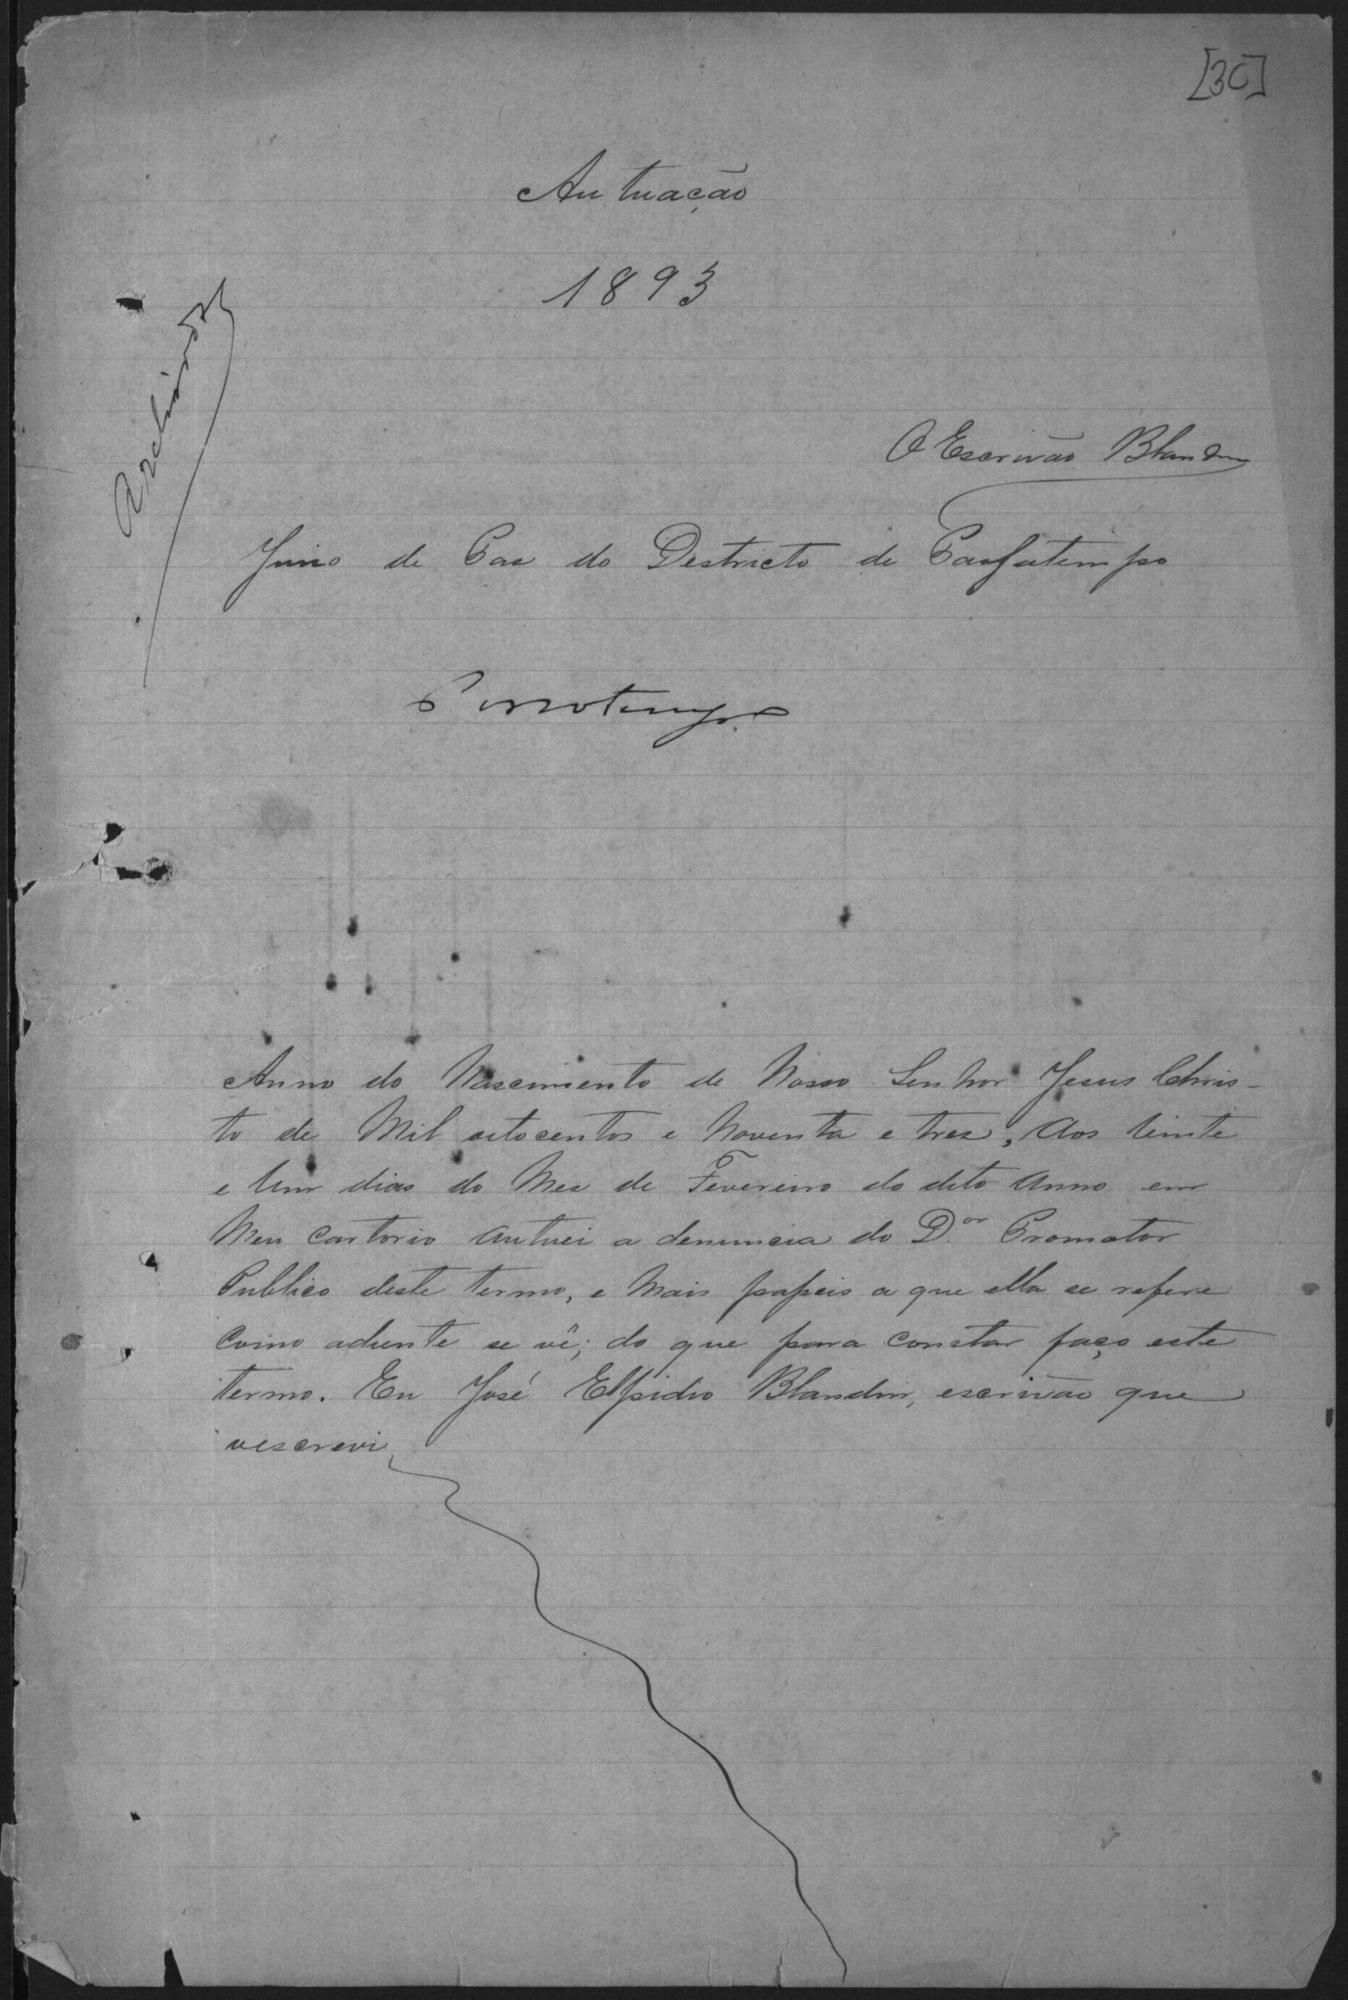 [30]
Autuação
1893
O Escrivão Blandin
Juiso de Pas do Destricto de Passatempo
Passatempo
Anno do Nascimento de Nosso Senhor Jesus Chris-
to de Mil oitocentos e Noventa e tres, Aos vinte
e Um dias do Mez de Fevereiro do dito Anno em
Meu cartorio Autuei a denuncia do D.or Promotor
Publico deste termo, e Mais papeis a que ella se refere
Como adiente se vê; do que para constar faço este
termo. Eu José Elpidio Blandin, escrivão que
oescrevi